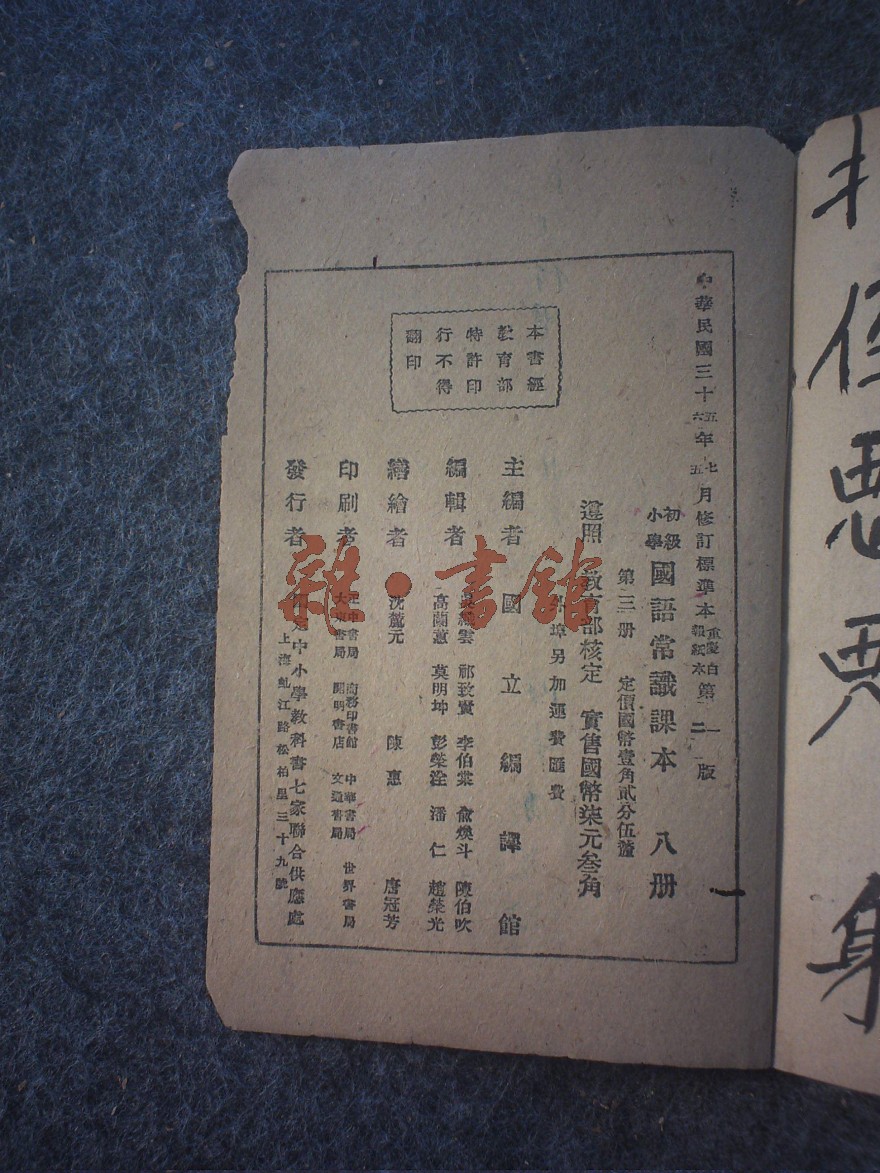 中華民國三十五年七月修訂標準本重慶白報紙本第一版
六五二
初級小學國語常識課本 八册
第三册 定價國幣壹角貳分伍釐
遵照教育部核定 實售國幣柒元叁角
外埠另加運費匯費
本書經
教育部
特許印
行不得
翻印
主編者 國立編譯館
編輯者 吳 雲 祁致賢 李伯棠 俞煥斗 陳伯吹
高蘭蕙 莫明坤 彭榮淦 潘仁 趙榮光
繕繪者 沈麓元 陳惠 唐冠芳
印刷者 正中書局 商務印書館 中華書局 世界書局
大東書局 開明書店 文通書局
發行者 國定中小學教科書七家聯合供應處
上海虬江路松柏里三十九號
雜·書館